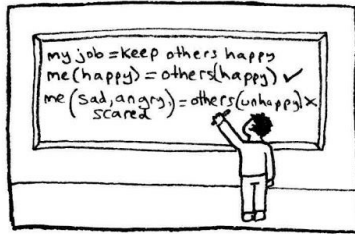 my job = keep others happy
me (happy) = others (happy) ✓
me (sad, angry, scared) = others (unhappy) ×